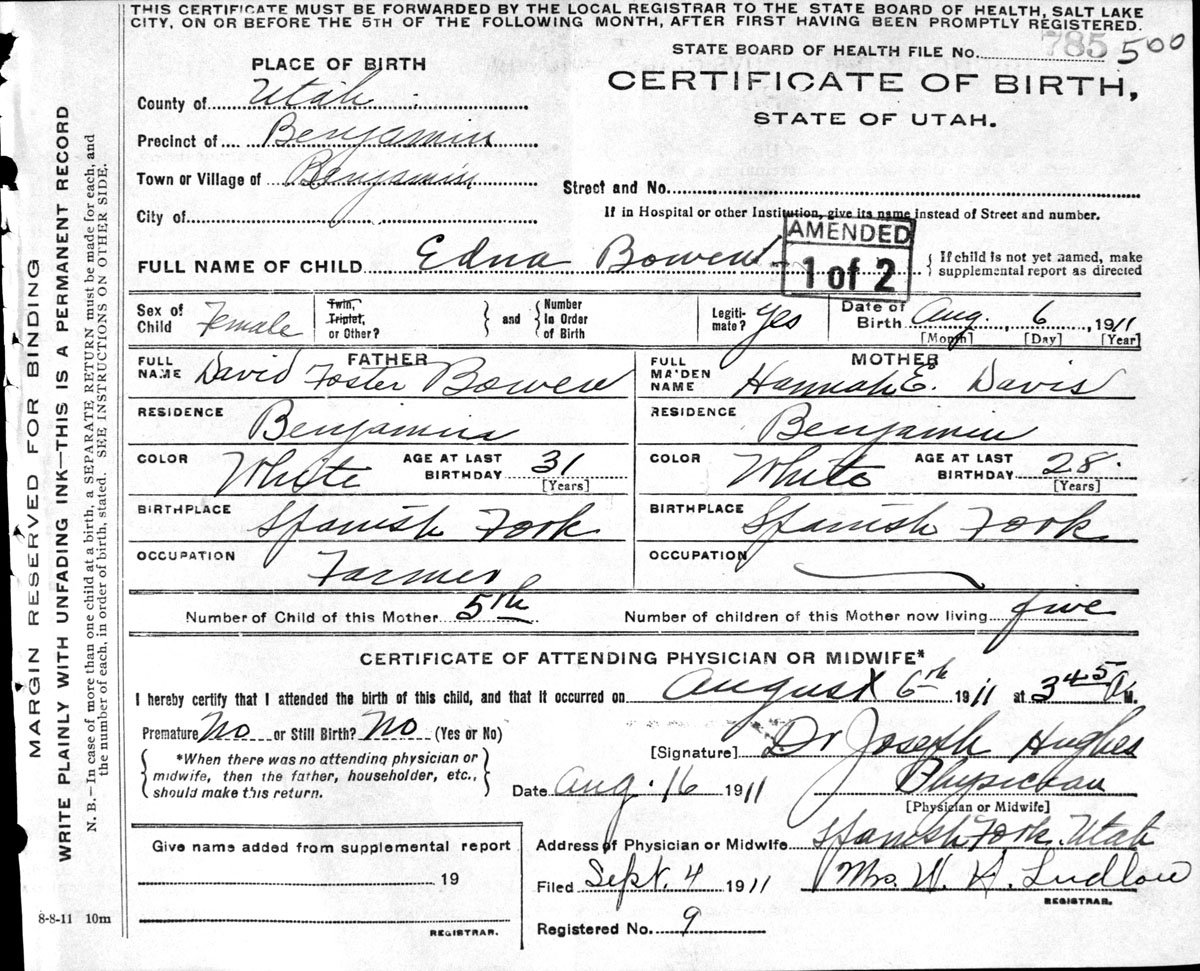 THIS CERTIFICATE MUST BE FORWARDED BY THE LOCAL REGISTRAR TO THE STATE BOARD OF HEALTH, SALT LAKE
CITY, ON OR BEFORE THE 5TH OF THE FOLLOWING MONTH, AFTER FIRST HAVING BEEN PROMPTLY REGISTERED.
STATE BOARD OF HEALTH FILE No. 785 500
CERTIFICATE OF BIRTH,
STATE OF UTAH.
PLACE OF BIRTH
County of Utah
Precinct of Benjamin
Town or Village of Benjamin
Street and No.
City of
If in Hospital or other Institution, give its name instead of Street and number.
AMENDED
1 of 2
FULL NAME OF CHILD Edna Bowen
If child is not yet named, make
supplemental report as directed
Sex of Child Female
Twin, Triplet, or Other?
and
Number In Order of Birth
Legiti-mate? Yes
Date of Birth Aug. 6, 1911
[Month] [Day] [Year]
FATHER
FULL NAME David Foster Bowen
RESIDENCE
Benjamin
COLOR White AGE AT LAST BIRTHDAY 31
[Years]
BIRTHPLACE
Spanish Fork
OCCUPATION
Farmer
MOTHER
FULL MAIDEN NAME Hannah E. Davis
RESIDENCE
Benjamin
COLOR White AGE AT LAST BIRTHDAY 28
[Years]
BIRTHPLACE
Spanish Fork
OCCUPATION
Number of Child of this Mother 5th
Number of children of this Mother now living five
CERTIFICATE OF ATTENDING PHYSICIAN OR MIDWIFE*
I hereby certify that I attended the birth of this child, and that it occurred on August 6th 1911 at 3 45 A M.
Premature No or Still Birth? No (Yes or No)
*When there was no attending physician or
midwife, then the father, householder, etc.,
should make this return.
[Signature] Dr Joseph Hughes
Date Aug. 16 1911
Physician
[Physician or Midwife]
Give name added from supplemental report
19
REGISTRAR.
Address of Physician or Midwife Spanish Fork, Utah
Filed Sept. 4 1911
Mrs. W. H. Ludlow
REGISTRAR.
Registered No. 9
8-8-11 10m
MARGIN RESERVED FOR BINDING
WRITE PLAINLY WITH UNFADING INK—THIS IS A PERMANENT RECORD
N. B.—In case of more than one child at a birth, a SEPARATE RETURN must be made for each, and
the number of each, in order of birth, stated. SEE INSTRUCTIONS ON OTHER SIDE.